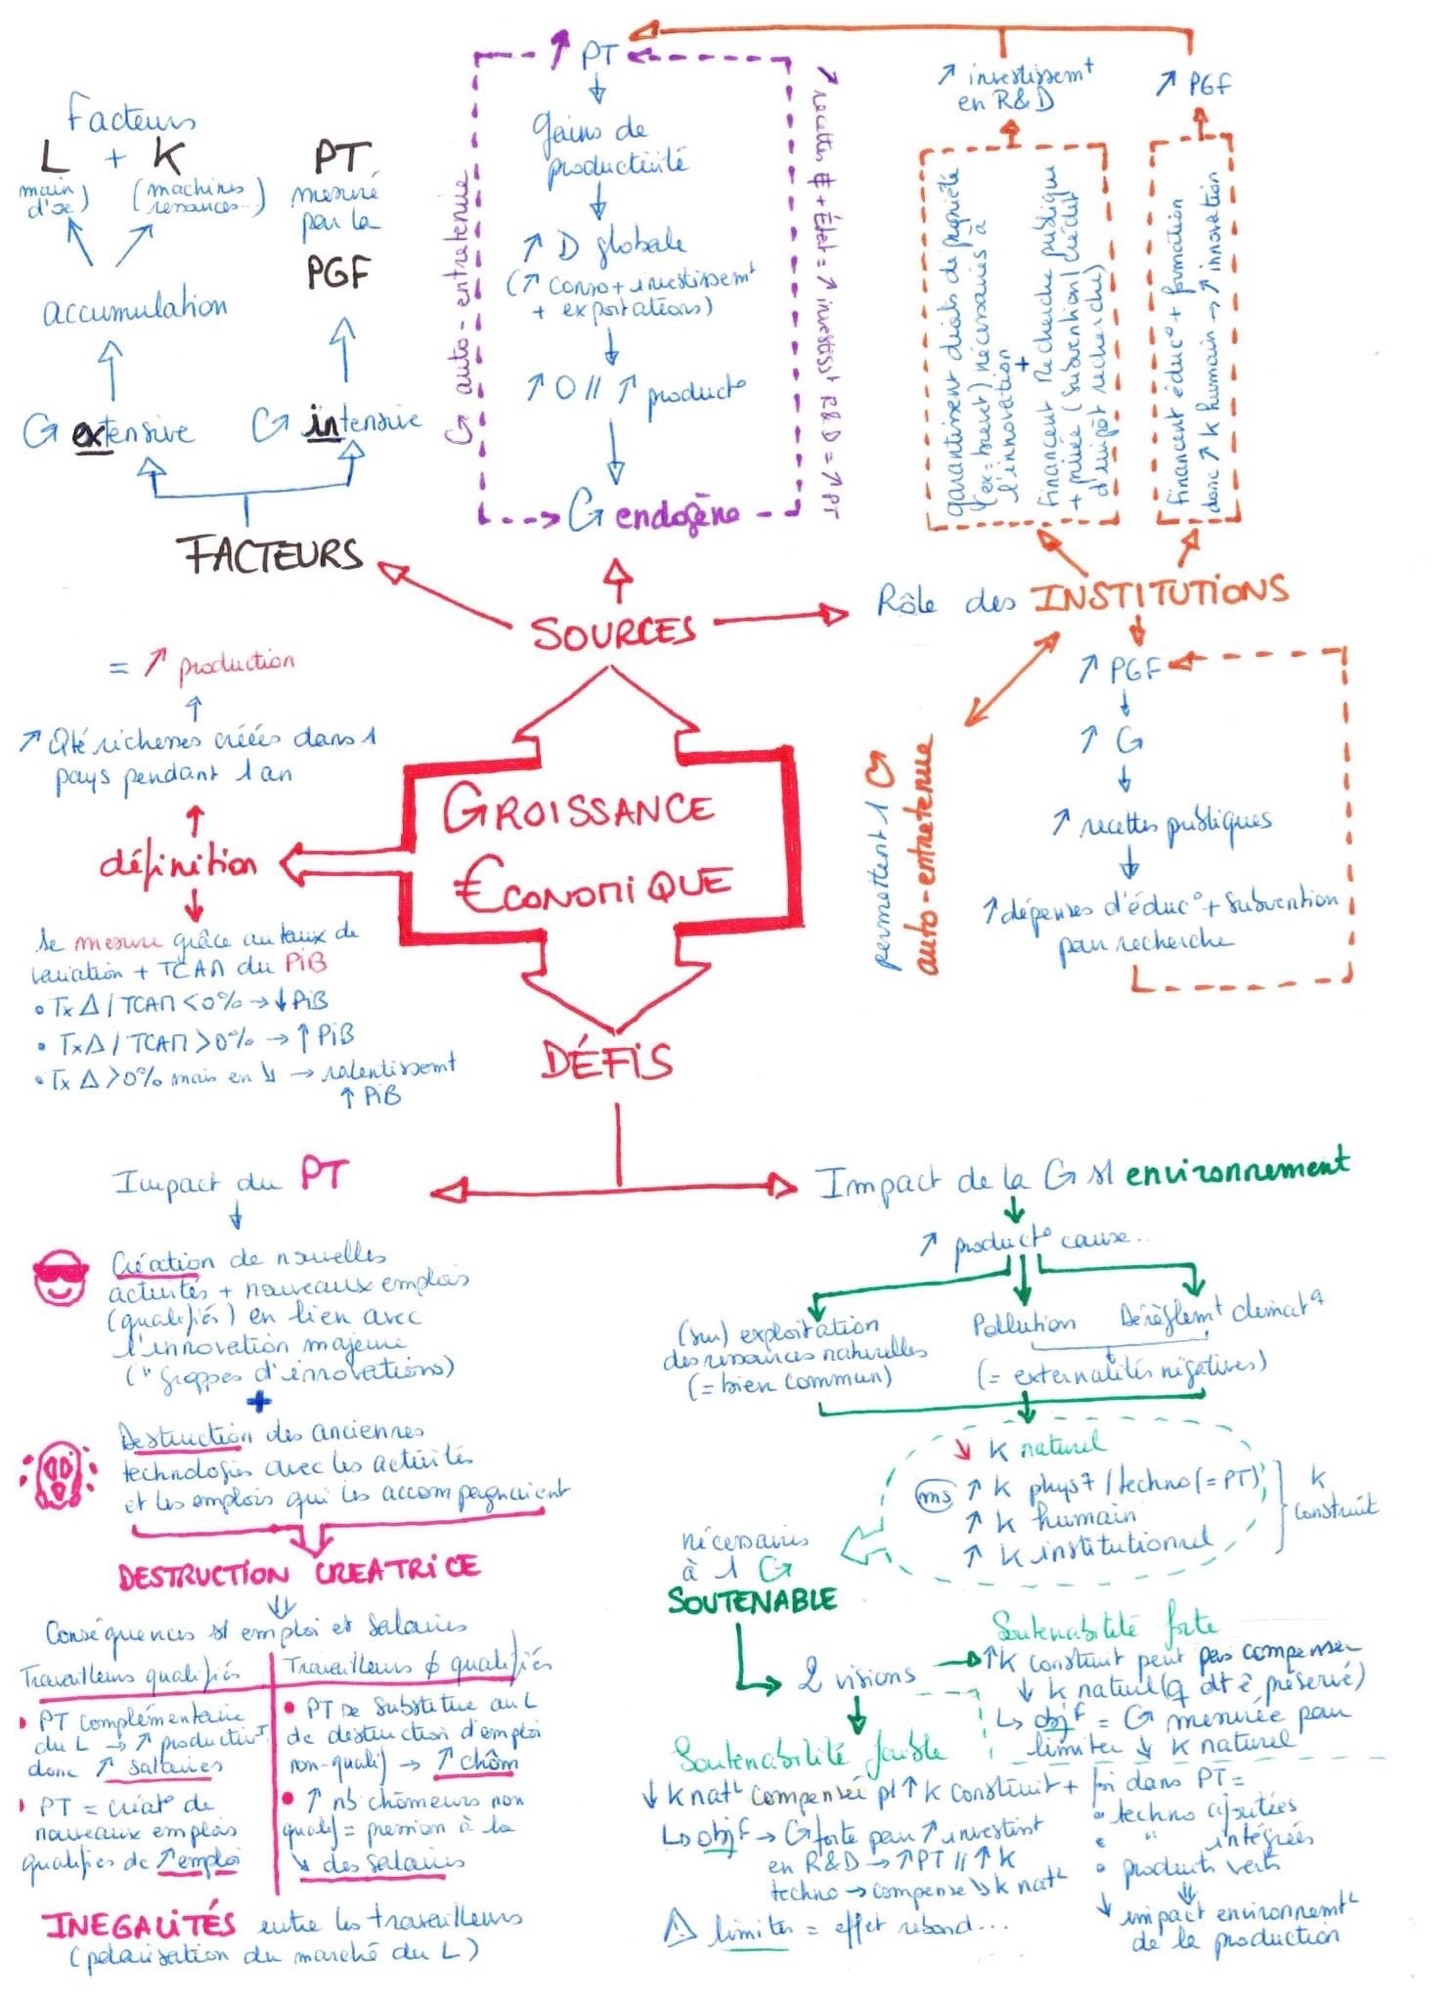 Facteurs
L + K
(main d'œ)
(machines
ressources...)
PT
mesuré
par la
PGF
accumulation
G extensive
G intensive
FACTEURS
↗ PT
Gains de
productivité
↗ D globale
(↗ conso + investissemt
+ exportations)
↗ O // ↗ producto
G endogène
G auto-entretenue
↗ recettes E + État = ↗ investisst R&D = ↗ PT
↗ investissemt
en R&D
↗ PGF
garantissent droits de propriété
(ex = brevet) nécessaires à
l'innovation
+
financent Recherche publique
+ privée (subvention / crédit
d'impôt recherche)
financent éduco + formation
donc ↗ K humain → ↗ innovation
SOURCES
Rôle des INSTITUTIONS
↗ PGF
↗ G
↗ recettes publiques
↗ dépenses d'éduco + subvention
pour recherche
permettent 1 G
auto-entretenue
= ↗ production
↗ Qté richesses créées dans 1
pays pendant 1 an
définition
Se mesure grâce au taux de
variation + TCAM du PiB
• Tx Δ / TCAM < 0% → ↓ PiB
• Tx Δ / TCAM > 0% → ↑ PiB
• Tx Δ > 0% mais en ↘ → ralentissemt
↑ PiB
GROISSANCE
€CONOMIQUE
DÉFIS
Impact du PT
Création de nouvelles
activités + nouveaux emplois
(qualifiés) en lien avec
l'innovation majeure
(" grappes d'innovations)
+
Destruction des anciennes
technologies avec les activités
et les emplois qui les accompagnaient
DESTRUCTION CREATRICE
Conséquences s/ emploi et salaires
Travailleurs qualifiés
• PT complémentaire
du L → ↗ productivT
donc ↗ salaires
• PT = créato de
nouveaux emplois
qualifiés de ↗ emploi
Travailleurs ɸ qualifiés
• PT se substitue au L
de destruction d'emploi
non-qualif → ↗ chôm
• ↗ nb chômeurs non
qualif = pression à la
↘ des salaires
INEGALITÉS entre les travailleurs
(polarisation du marché du L)
Impact de la G s/ environnement
↗ producto cause...
(sur) exploitation
des ressources naturelles
(= bien commun)
Pollution
Dérèglemt climatq
(= externalités négatives)
↘ K naturel
ms ↗ K phys7 / techno (= PT)
↗ K humain
↗ K institutionnel
K
construit
nécessaires
à 1 G
SOUTENABLE
2 visions
Soutenabilité forte
↗ K construit peut pas compenser
↓ K naturel (q dt ê préservé)
↳ objf = G mesurée pour
limiter ↓ K naturel
Soutenabilité faible
↓ K natL compensée pr ↑ K construit + foi dans PT =
↳ objf → G forte pour ↗ investist
en R&D → ↗ PT // ↗ K
techno → compense ↘ K natL
⚠ limites = effet rebond...
• techno ajoutées
• " intégrées
• produits verts
↓ impact environnemtL
de la production